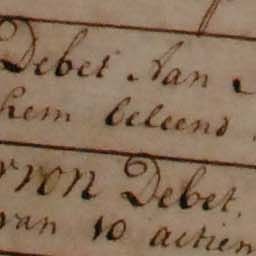 Debet Aan
hem beleend
rron Debet,
van 10 actien